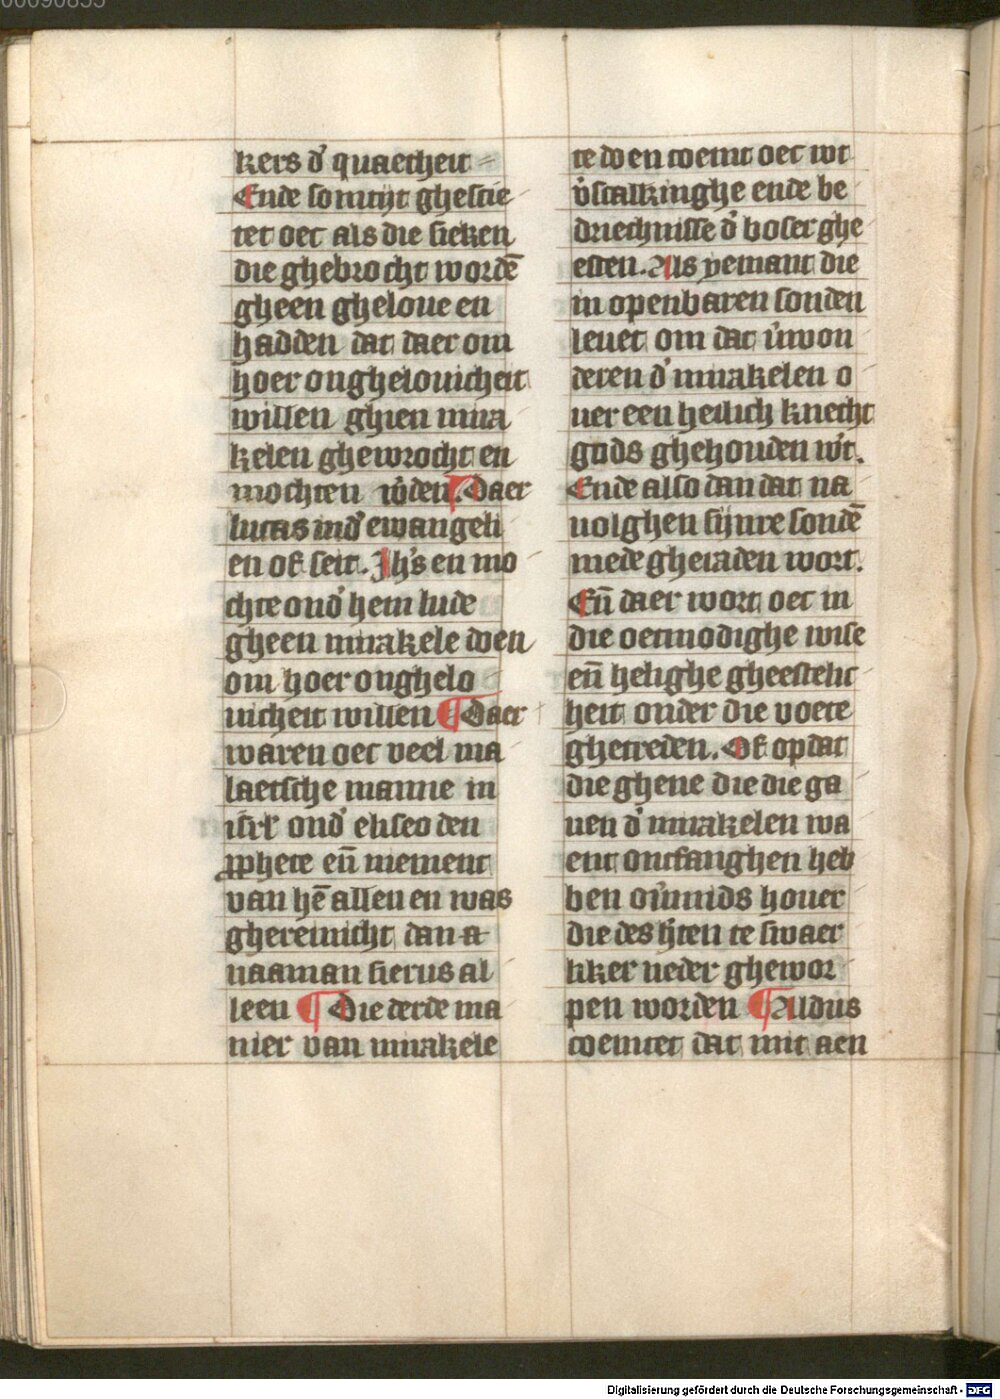 00090855
kers d' quaetheit
Ende somtijt ghescie
tet oec als die sieken
die ghebrocht wordē
gheen gheloue en
hadden dat daer om
hoer onghelouicheit
willen ghien mira
kelen ghewrocht en
mochten w'den. Daer
lucas in d' ewangeli
en of seit. Ih's en mo
chte ond' hem lude
gheen mirakele doen
om hoer onghelo
uicheit willen ¶ Daer
waren oec veel ma
laetsche manne in
isrl' ond' eliseo den
ꝓphete en̄ niement
van hē allen en was
ghereinicht dan a
naaman sierus al
leen ¶ Die derde ma
nier van mirakele
te doen coemt oec wt
v'stalkinghe ende be
driechnisse d' boser ghe
esten. Als yemant die
in openbaren sonden
leuet om dat v'won
deren d' mirakelen o
uer een heilich knecht
gods ghehouden w't.
Ende also dan dat na
uolghen sijnre sondē
mede gheraden wort.
En̄ daer wort oec in
die oetmodighe wise
en̄ helighe gheestelic
heit onder die voete
ghetreden. Of op dat
die ghene die die ga
uen d' mirakelen wa
ent ontfanghen heb
ben ou'mids houer
die des h'ten te swaer
liker neder ghewor
pen worden ¶ Aldus
coemtet dat mit aen
Digitalisierung gefördert durch die Deutsche Forschungsgemeinschaft - DFG